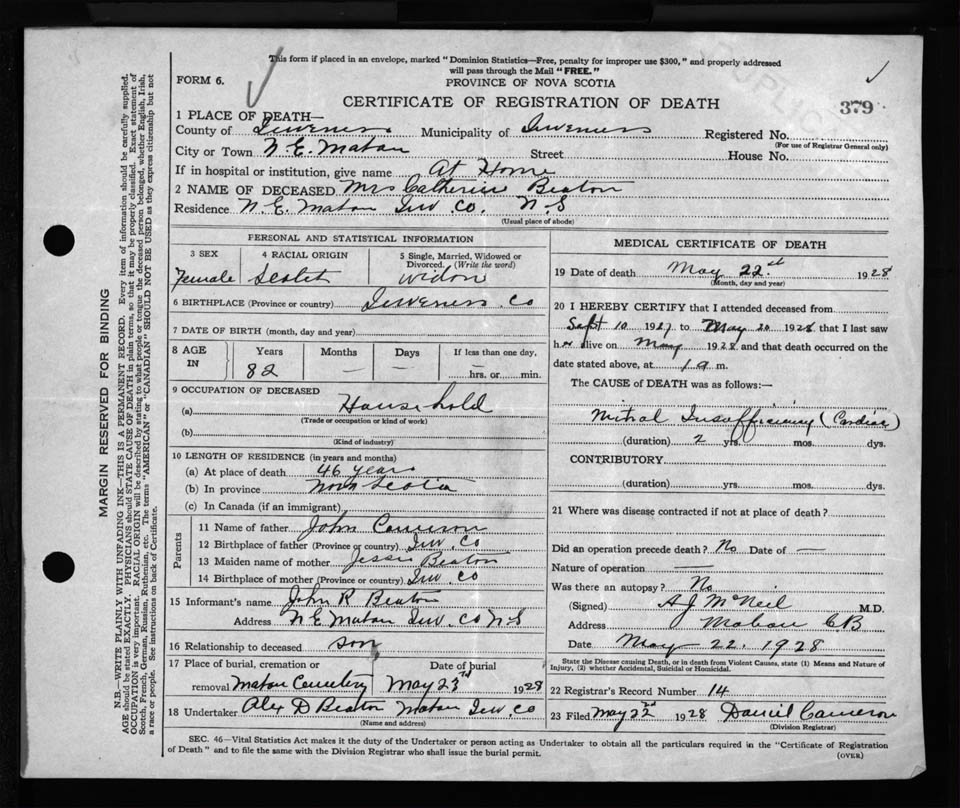 This form if placed in an envelope, marked "Dominion Statistics—Free, penalty for improper use $300," and properly addressed
will pass through the Mail "FREE."
FORM 6.
PROVINCE OF NOVA SCOTIA
CERTIFICATE OF REGISTRATION OF DEATH
379
1 PLACE OF DEATH—
County of Inverness Municipality of Inverness Registered No.
(For use of Registrar General only)
City or Town N.E. Mabou Street House No.
If in hospital or institution, give name At Home
2 NAME OF DECEASED Mrs Catherine Beaton
Residence N.E. Mabou Inv. Co. N.S
(Usual place of abode)
PERSONAL AND STATISTICAL INFORMATION
3 SEX
4 RACIAL ORIGIN
5 Single, Married, Widowed or
Divorced. (Write the word)
Female
widow
6 BIRTHPLACE (Province or country) Inverness Co
7 DATE OF BIRTH (month, day and year)
8 AGE IN
Years Months Days If less than one day,
82 — — hrs. or min.
9 OCCUPATION OF DECEASED
(a) Household
(Trade or occupation or kind of work)
(b)
(Kind of industry)
10 LENGTH OF RESIDENCE (in years and months)
(a) At place of death 46 years
(b) In province Nova Scotia
(c) In Canada (if an immigrant)
Parents
11 Name of father John Cameron
12 Birthplace of father (Province or country) Inv. Co
13 Maiden name of mother Jessie Beaton
14 Birthplace of mother (Province or country) Inv. Co
15 Informant's name John R Beaton
Address N E Mabou Inv. Co N S
16 Relationship to deceased son
17 Place of burial, cremation or Date of burial
removal Mabou Cemetery May 23rd 1928
18 Undertaker Alex D Beaton Mabou Inv. Co
(Name and address)
MEDICAL CERTIFICATE OF DEATH
19 Date of death May 22 1928
(Month, day and year)
20 I HEREBY CERTIFY that I attended deceased from
Sept 10 1927 to May 20 1928 that I last saw
her alive on May 1928 and that death occurred on the
date stated above, at 1 a m.
The CAUSE of DEATH was as follows:—
Mitral Insufficiency (Cardiac)
(duration) 2 yrs. mos. dys.
CONTRIBUTORY
(duration) yrs. mos. dys.
21 Where was disease contracted if not at place of death?
Did an operation precede death? No Date of —
Nature of operation —
Was there an autopsy? No
(Signed) A J McNeil M.D.
Address Mabou C B
Date May 22, 1928
State the Disease causing Death, or in death from Violent Causes, state (1) Means and Nature of
Injury, (2) whether Accidental, Suicidal or Homicidal.
22 Registrar's Record Number 14
23 Filed May 22nd 1928 Daniel Cameron
(Division Registrar)
SEC. 46—Vital Statistics Act makes it the duty of the Undertaker or person acting as Undertaker to obtain all the particulars required in the "Certificate of Registration
of Death" and to file the same with the Division Registrar who shall issue the burial permit.
(OVER)
MARGIN RESERVED FOR BINDING
N.B.—WRITE PLAINLY WITH UNFADING INK—THIS IS A PERMANENT RECORD. Every item of information should be carefully supplied.
AGE should be stated EXACTLY. PHYSICIANS should STATE CAUSE OF DEATH in plain terms, so that it may be properly classified. Exact statement of
OCCUPATION is very important. RACIAL ORIGIN will be described by stating to what people or tongue the deceased person belonged, whether English, Irish,
Scotch, French, German, Russian, Ruthenian, etc. The terms "AMERICAN" or "CANADIAN" SHOULD NOT BE USED as they express citizenship but not
a race or people. See instructions on back of Certificate.